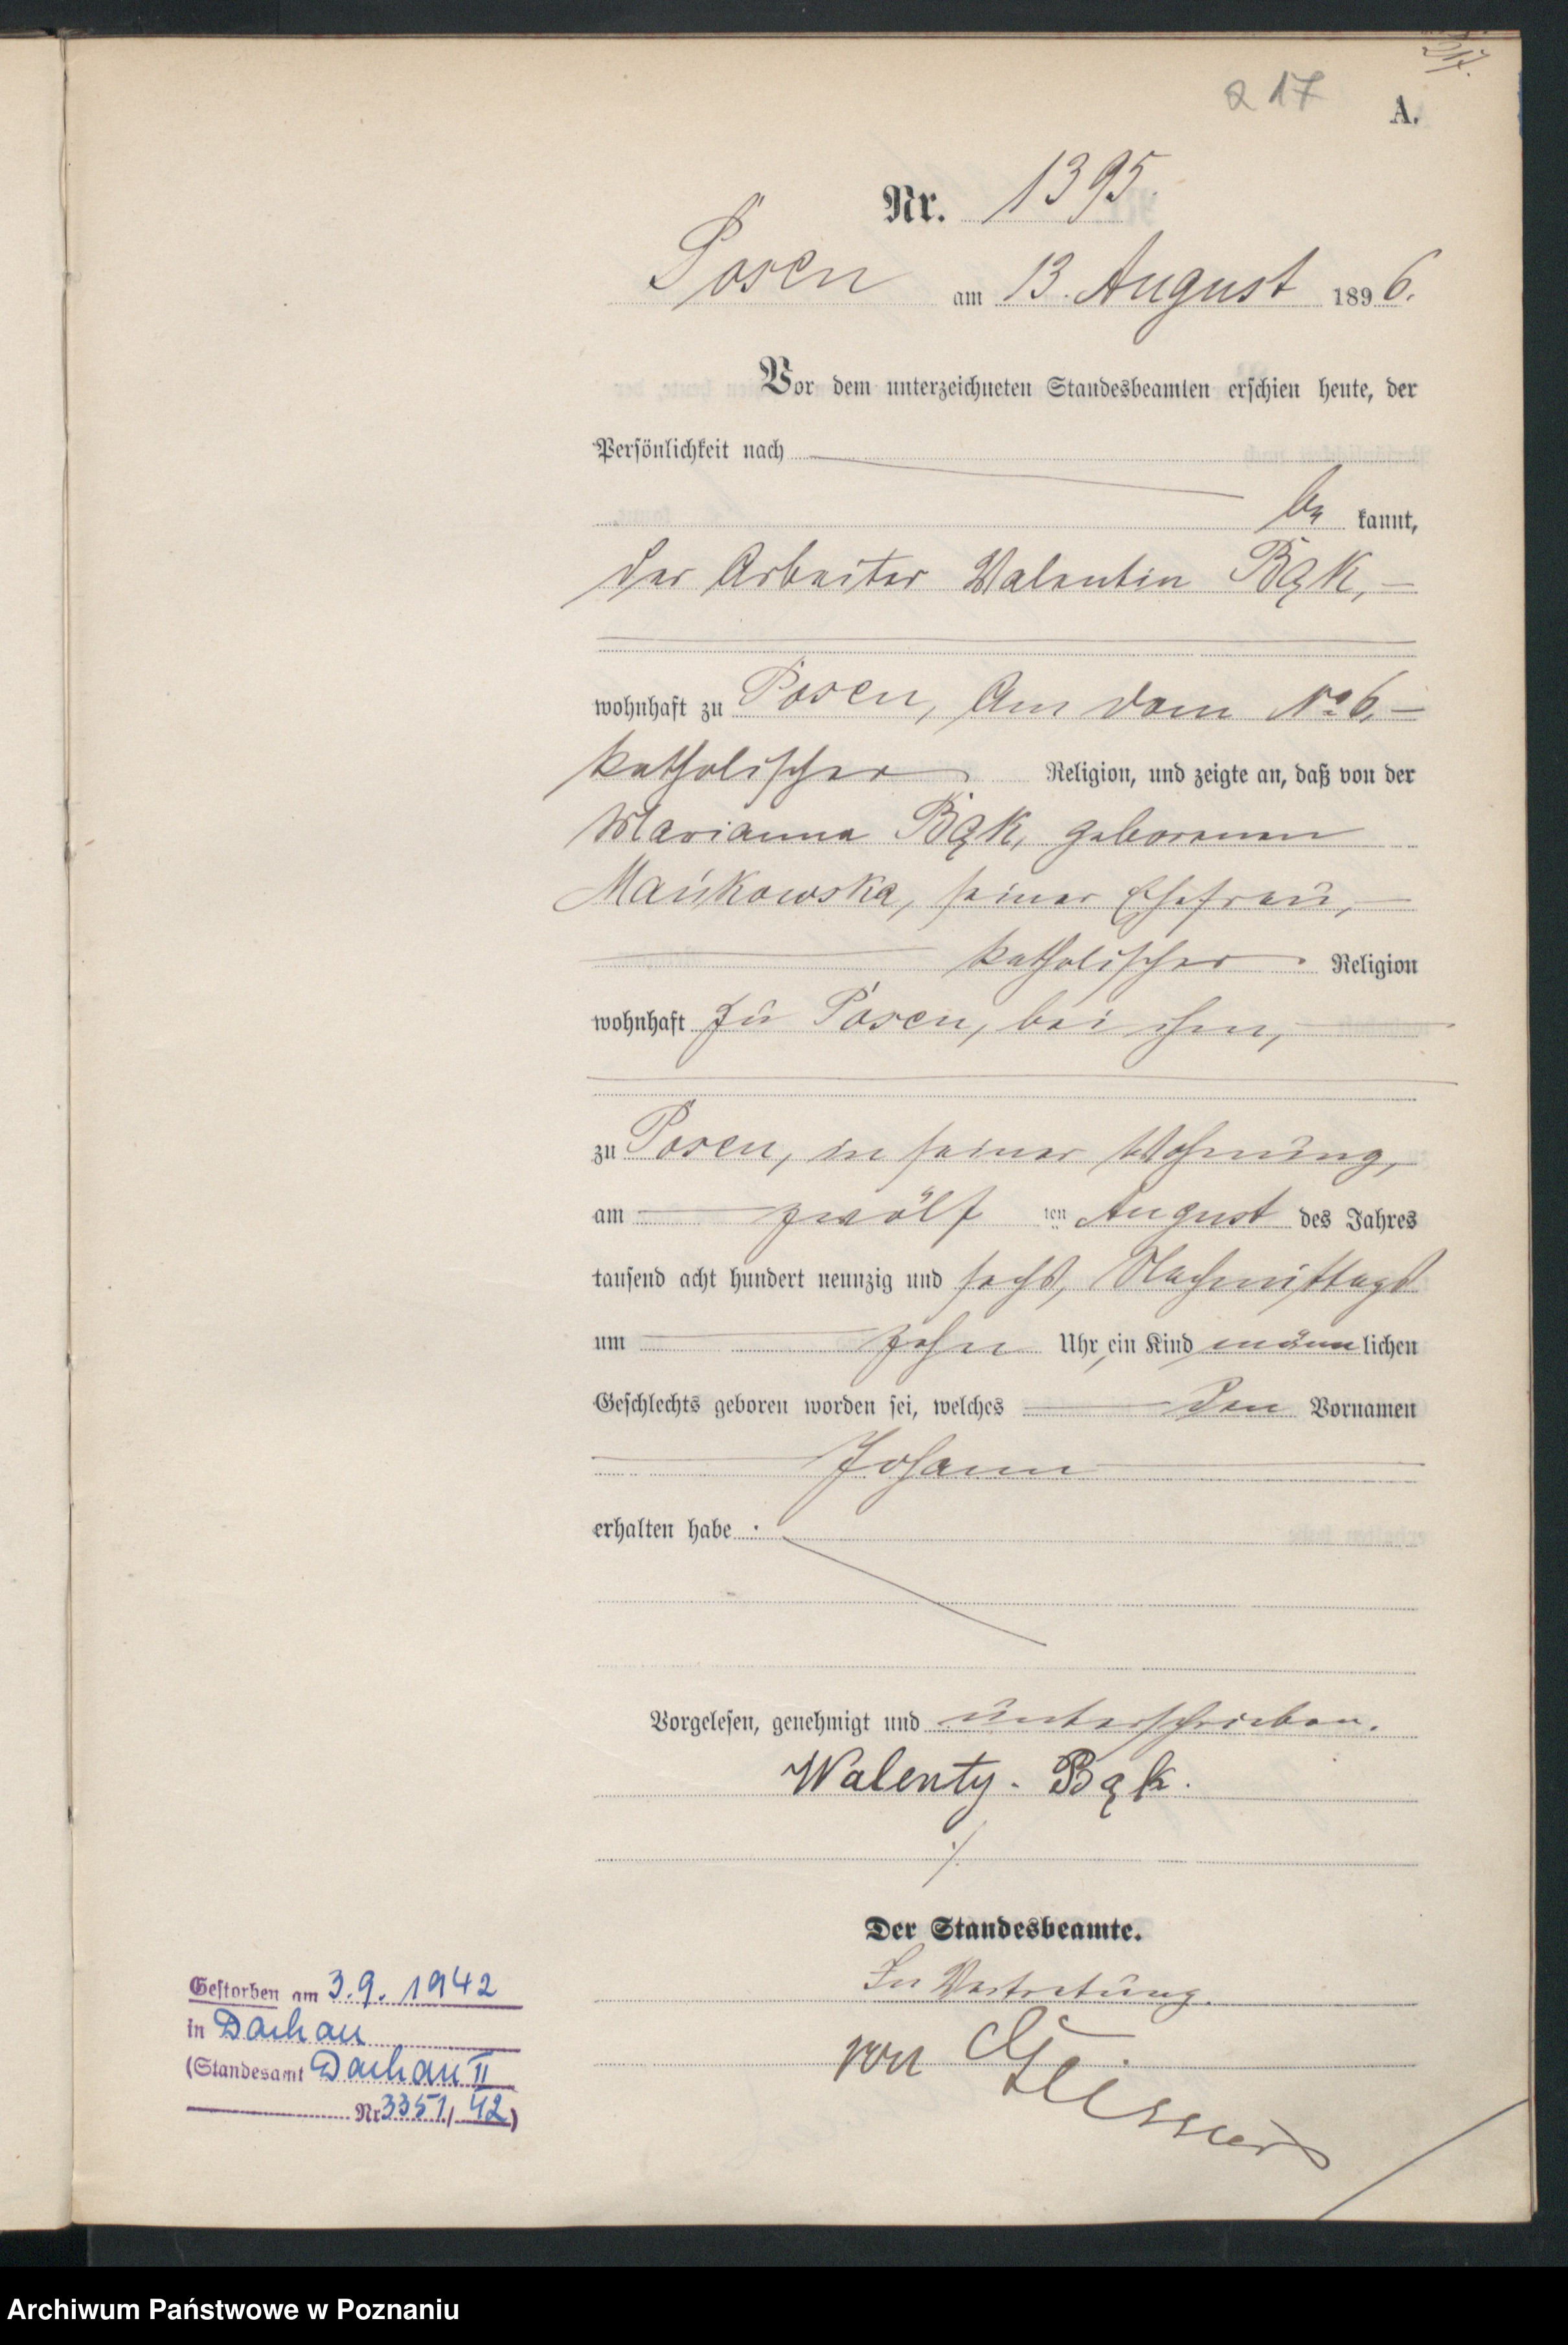 217.
217
A.
Nr. 1395.
Posen am 13. August 1896.
Vor dem unterzeichneten Standesbeamten erschien heute, der
Persönlichkeit nach
be kannt,
der Arbeiter Valentin Bąk, —
wohnhaft zu Posen, Am Dom No 6. —
katholischer Religion, und zeigte an, daß von der
Marianna Bąk, geborenen
Mańkowska, seiner Ehefrau, —
katholischer Religion
wohnhaft zu Posen, bei ihm, —
zu Posen, in seiner Wohnung,
am — zwölf ten August des Jahres
tausend acht hundert neunzig und sechs, Nachmittags
um — zehn Uhr, ein Kind männlichen
Geschlechts geboren worden sei, welches — den Vornamen
Johann
erhalten habe .
Vorgelesen, genehmigt und unterschrieben.
Walenty. Bąk.
Der Standesbeamte.
In Vertretung.
von
Gestorben am 3.9.1942
in Dachau
(Standesamt Dachau II
Nr 3351/42)
Archiwum Państwowe w Poznaniu